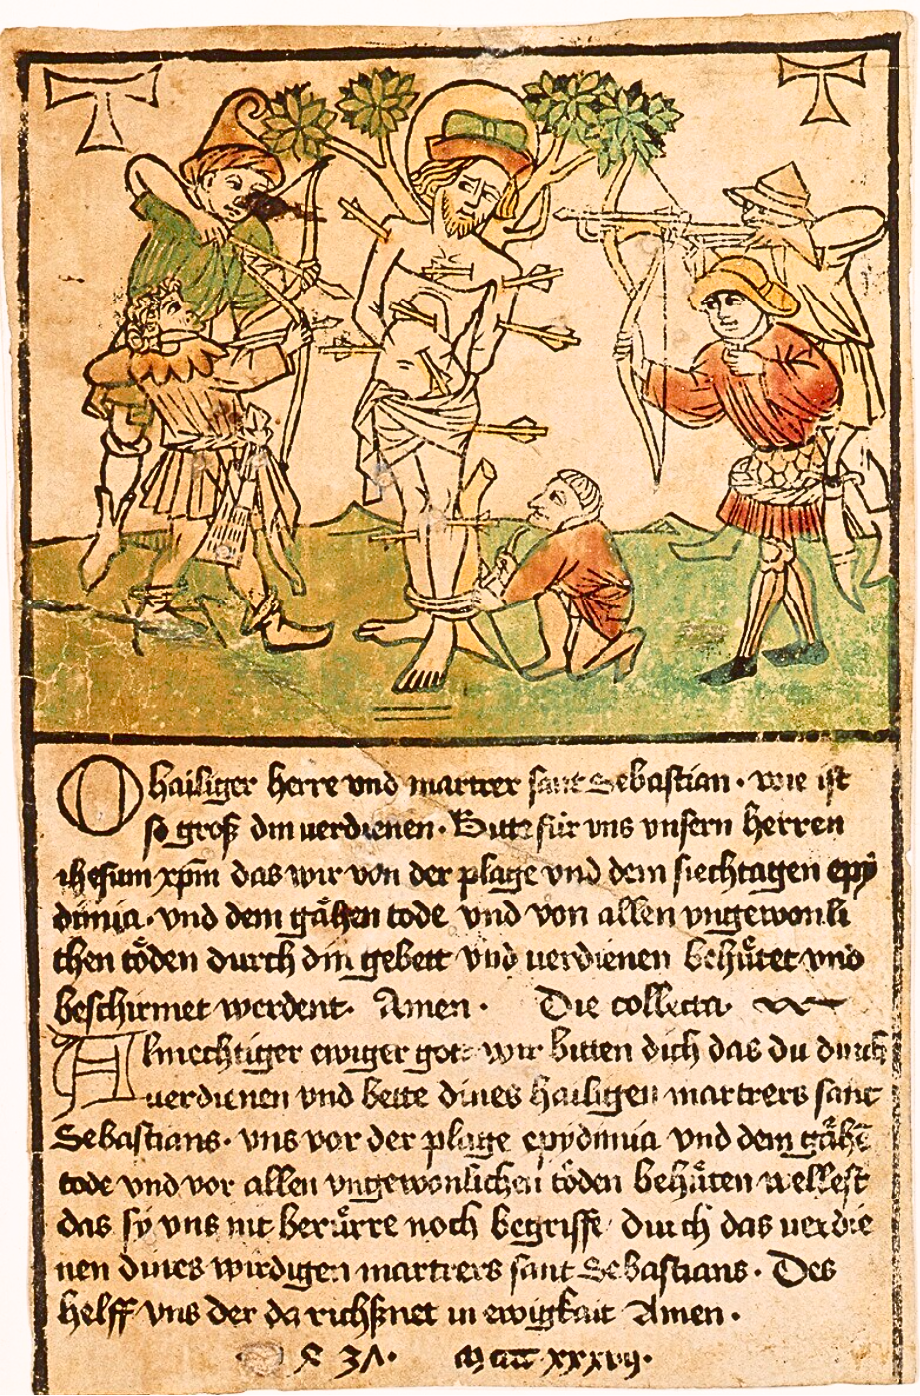 O hailiger herre vnd martrer sant Sebastian · wie ist
so groß din uerdienen · Bitt für vns vnsern herren
ihesum xp̄m das wir von der plage vnd dem siechtagen epy
dimia · vnd dem gåhen tode vnd von allen vngewonli
chen töden durch din gebett vnd uerdienen behütet vnd
beschirmet werdent · Amen · Die collecta
Almechtiger ewiger gott wir bitten dich das du durch
uerdienen vnd bette dines hailigen martrers sant
Sebastians · vns vor der plage epydimia vnd dem gåhē
tode vnd vor allen vngewonlichen töden behåten wellest
das sy vns nit berůrre noch begriffe durch das uerdie
nen dines wirdigen martrers sant Sebastians · Des
helff vns der da richßnet in ewigkait Amen ·
xxxvij ·